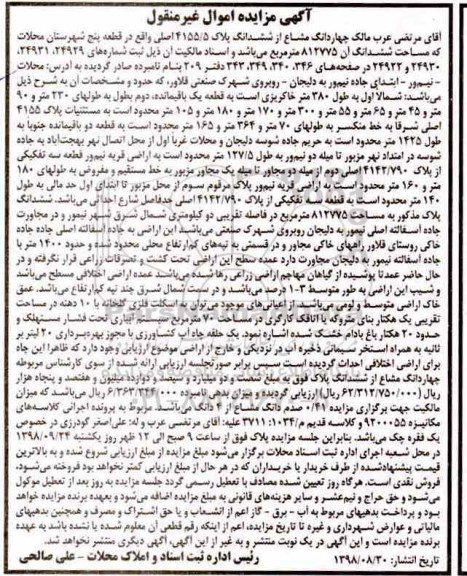 آگهی مزایده اموال غیرمنقول
آقای مرتضی عرب مالک چهاردانگ مشاع از ششدانگ پلاک ۴۱۵۵/۵ اصلی واقع در قطعه پنج شهرستان محلات
که مساحت ششدانگ آن ۸۱۲۷۷۵ مترمربع می‌باشد و اسناد مالکیت آن ذیل ثبت شماره‌های ۲۴۹۲۹، ۲۴۹۳۱،
۲۴۹۳۰ و ۲۴۹۲۲ در صفحه‌های ۳۴۶، ۳۴۰، ۳۴۹، ۳۴۳ دفتر ۲۰۹ بنام نامبرده صادر گردیده به آدرس: محلات
- نیم‌ور - ابتدای جاده نیم‌ور به دلیجان - روبروی شهرک صنعتی قلاور، که حدود و مشخصات آن به شرح ذیل
می‌باشد: شمالاً اول به طول ۳۸۰ متر خاکریزی است به قطعه یک باقیمانده، دوم بطول به طولهای ۲۳۰ متر و ۹۰
متر و ۴۵ متر و ۶۵ متر و ۵۵ متر و ۳۰۰ متر و ۱۷۰ متر و ۱۸۰ متر و ۱۰۵ متر محدود است به مستثنیات پلاک ۴۱۵۵
اصلی شرقا به خط منکسر به طولهای ۷۰ متر و ۳۶۴ متر و ۱۶۵ متر محدود است به قطعه دو باقیمانده جنوبا به
طول ۱۴۲۵ متر محدود است به حریم جاده شوسه دلیجان و محلات غربا اول از محل اتصال نهر بهجت‌آباد به جاده
شوسه در امتداد نهر مزبور تا میله دو نیم‌ور به طول ۱۲۷/۵ متر محدود است به اراضی قریه نیم‌ور قطعه سه تفکیکی
از پلاک ۴۱۴۲/۷۹۰ اصلی دوم از میله دو مجاور تا میله یک مجاور مزبور به خط مستقیم و مفروض به طولهای ۱۸۰
متر و ۱۶۰ متر محدود است به اراضی قریه نیم‌ور پلاک مرقوم سوم از محل مزبور تا ابتدای اول حد مالی به طول
۱۴۰ متر محدود است به قطعه یک تفکیکی از پلاک ۴۱۴۲/۷۹۰ اصلی حدفاصل شارع احداثی می‌باشد. ششدانگ
پلاک مذکور به مساحت ۸۱۲۷۷۵ مترمربع در فاصله تقریبی دو کیلومتری شمال شرق شهر نیم‌ور و در مجاورت
جاده آسفالته اصلی نیم‌ور به دلیجان روبروی شهرک صنعتی می‌باشد این اراضی به جاده آسفالته اصلی جاده جاده
خاکی روستای قلاور راههای خاکی مجاور و در قسمتی به تپه‌های کم‌ارتفاع محلی محدود شده و حدود ۱۴۰۰ متر با
جاده آسفالته نیم‌ور به دلیجان مجاورت دارد عمده سطح این اراضی تحت کشت و تصرفات زراعی قرار نگرفته و در
حال حاضر عمدتا پوشیده از گیاهان مهاجم اراضی زراعی رها شده می‌باشد عمده اراضی اختلافی مسطح می‌باشد
و شیب این اراضی به طور متوسط ۳-۱ درصد می‌باشد و در سمت شمال شرق چند تپه کم‌ارتفاع می‌باشد. عمق
خاک اراضی متوسط و لومی می‌باشد از اعیانی‌های موجود می‌توان به اسکلت فلزی گلخانه با ۱۰ دهنه در مساحت
تقریبی یک هکتار بنای متروکه با اتاقک کارگری در مساحت ۷۰ مترمربع سیستم آبیاری تحت فشار مستهلک و
حدود ۲۰ هکتار باغ بادام خشک شده اشاره نمود. یک حلقه چاه آب کشاورزی با مجوز بهره‌برداری ۲۰ لیتر بر
ثانیه به همراه استخر سیمانی ذخیره آب در نزدیکی و خارج از اراضی موضوع ارزیابی وجود دارد که ظاهرا این چاه
برای اراضی اختلافی احداث گردیده است سپس برابر صورتجلسه ارزیابی ارائه شده از سوی کارشناس مربوطه
چهاردانگ مشاع از ششدانگ پلاک فوق به مبلغ شصت و دو میلیارد و سیصد و دوازده میلیون و هفتصد و پنجاه هزار
ریال (۶۲/۳۱۲/۷۵۰/۰۰۰ ریال) ارزیابی گردیده و میزان بدهی بمبلغ سپرده ریال می‌باشد که میزان
مالکیت جهت برگزاری مزایده ۴۱/ صدم دانگ مشاع از ۶ دانگ می‌باشد. مربوط به پرونده اجرائی کلاسه‌های
مکانیزه ۹۲۰۰۰۵۵ و کلاسه قدیم م/۱۰۳۴: ۳۷۱۱ علیه: آقای مرتضی عرب و له: علی‌اصغر گودرزی در خصوص
یک فقره چک می‌باشد. بنابراین جلسه مزایده پلاک فوق از ساعت ۹ صبح الی ۱۲ ظهر روز یکشنبه ۱۳۹۸/۰۹/۲۴
در محل شعبه اجرای اداره ثبت اسناد محلات برگزار می‌شود مبلغ مزایده از مبلغ ارزیابی شروع شده و به بالاترین
قیمت پیشنهادشده از طرف خریدار یا خریداران که در هر حال از مبلغ ارزیابی کمتر نخواهد بود فروخته می‌شود،
فروش نقدی است. هرگاه روز تعیین شده مصادف با تعطیل رسمی گردد جلسه مزایده به روز بعد از تعطیل موکول
می‌شود و حق حراج و نیم‌عشر و سایر هزینه‌های قانونی به مبلغ مزایده اضافه می‌شود و بعهده برنده مزایده خواهد
بود و پرداخت بدهیهای مربوط به آب - برق - گاز اعم از انشعاب و یا حق اشتراک و مصرف و همچنین بدهیهای
مالیاتی و عوارض شهرداری و غیره تا تاریخ مزایده، اعم از اینکه رقم قطعی آن معلوم شده یا نشده باشد به عهده
برنده مزایده است و این آگهی در یک نوبت منتشر و به غیر از این آگهی، آگهی دیگری منتشر نخواهد شد.
تاریخ انتشار: ۱۳۹۸/۰۸/۳۰
رئیس اداره ثبت اسناد و املاک محلات - علی صالحی